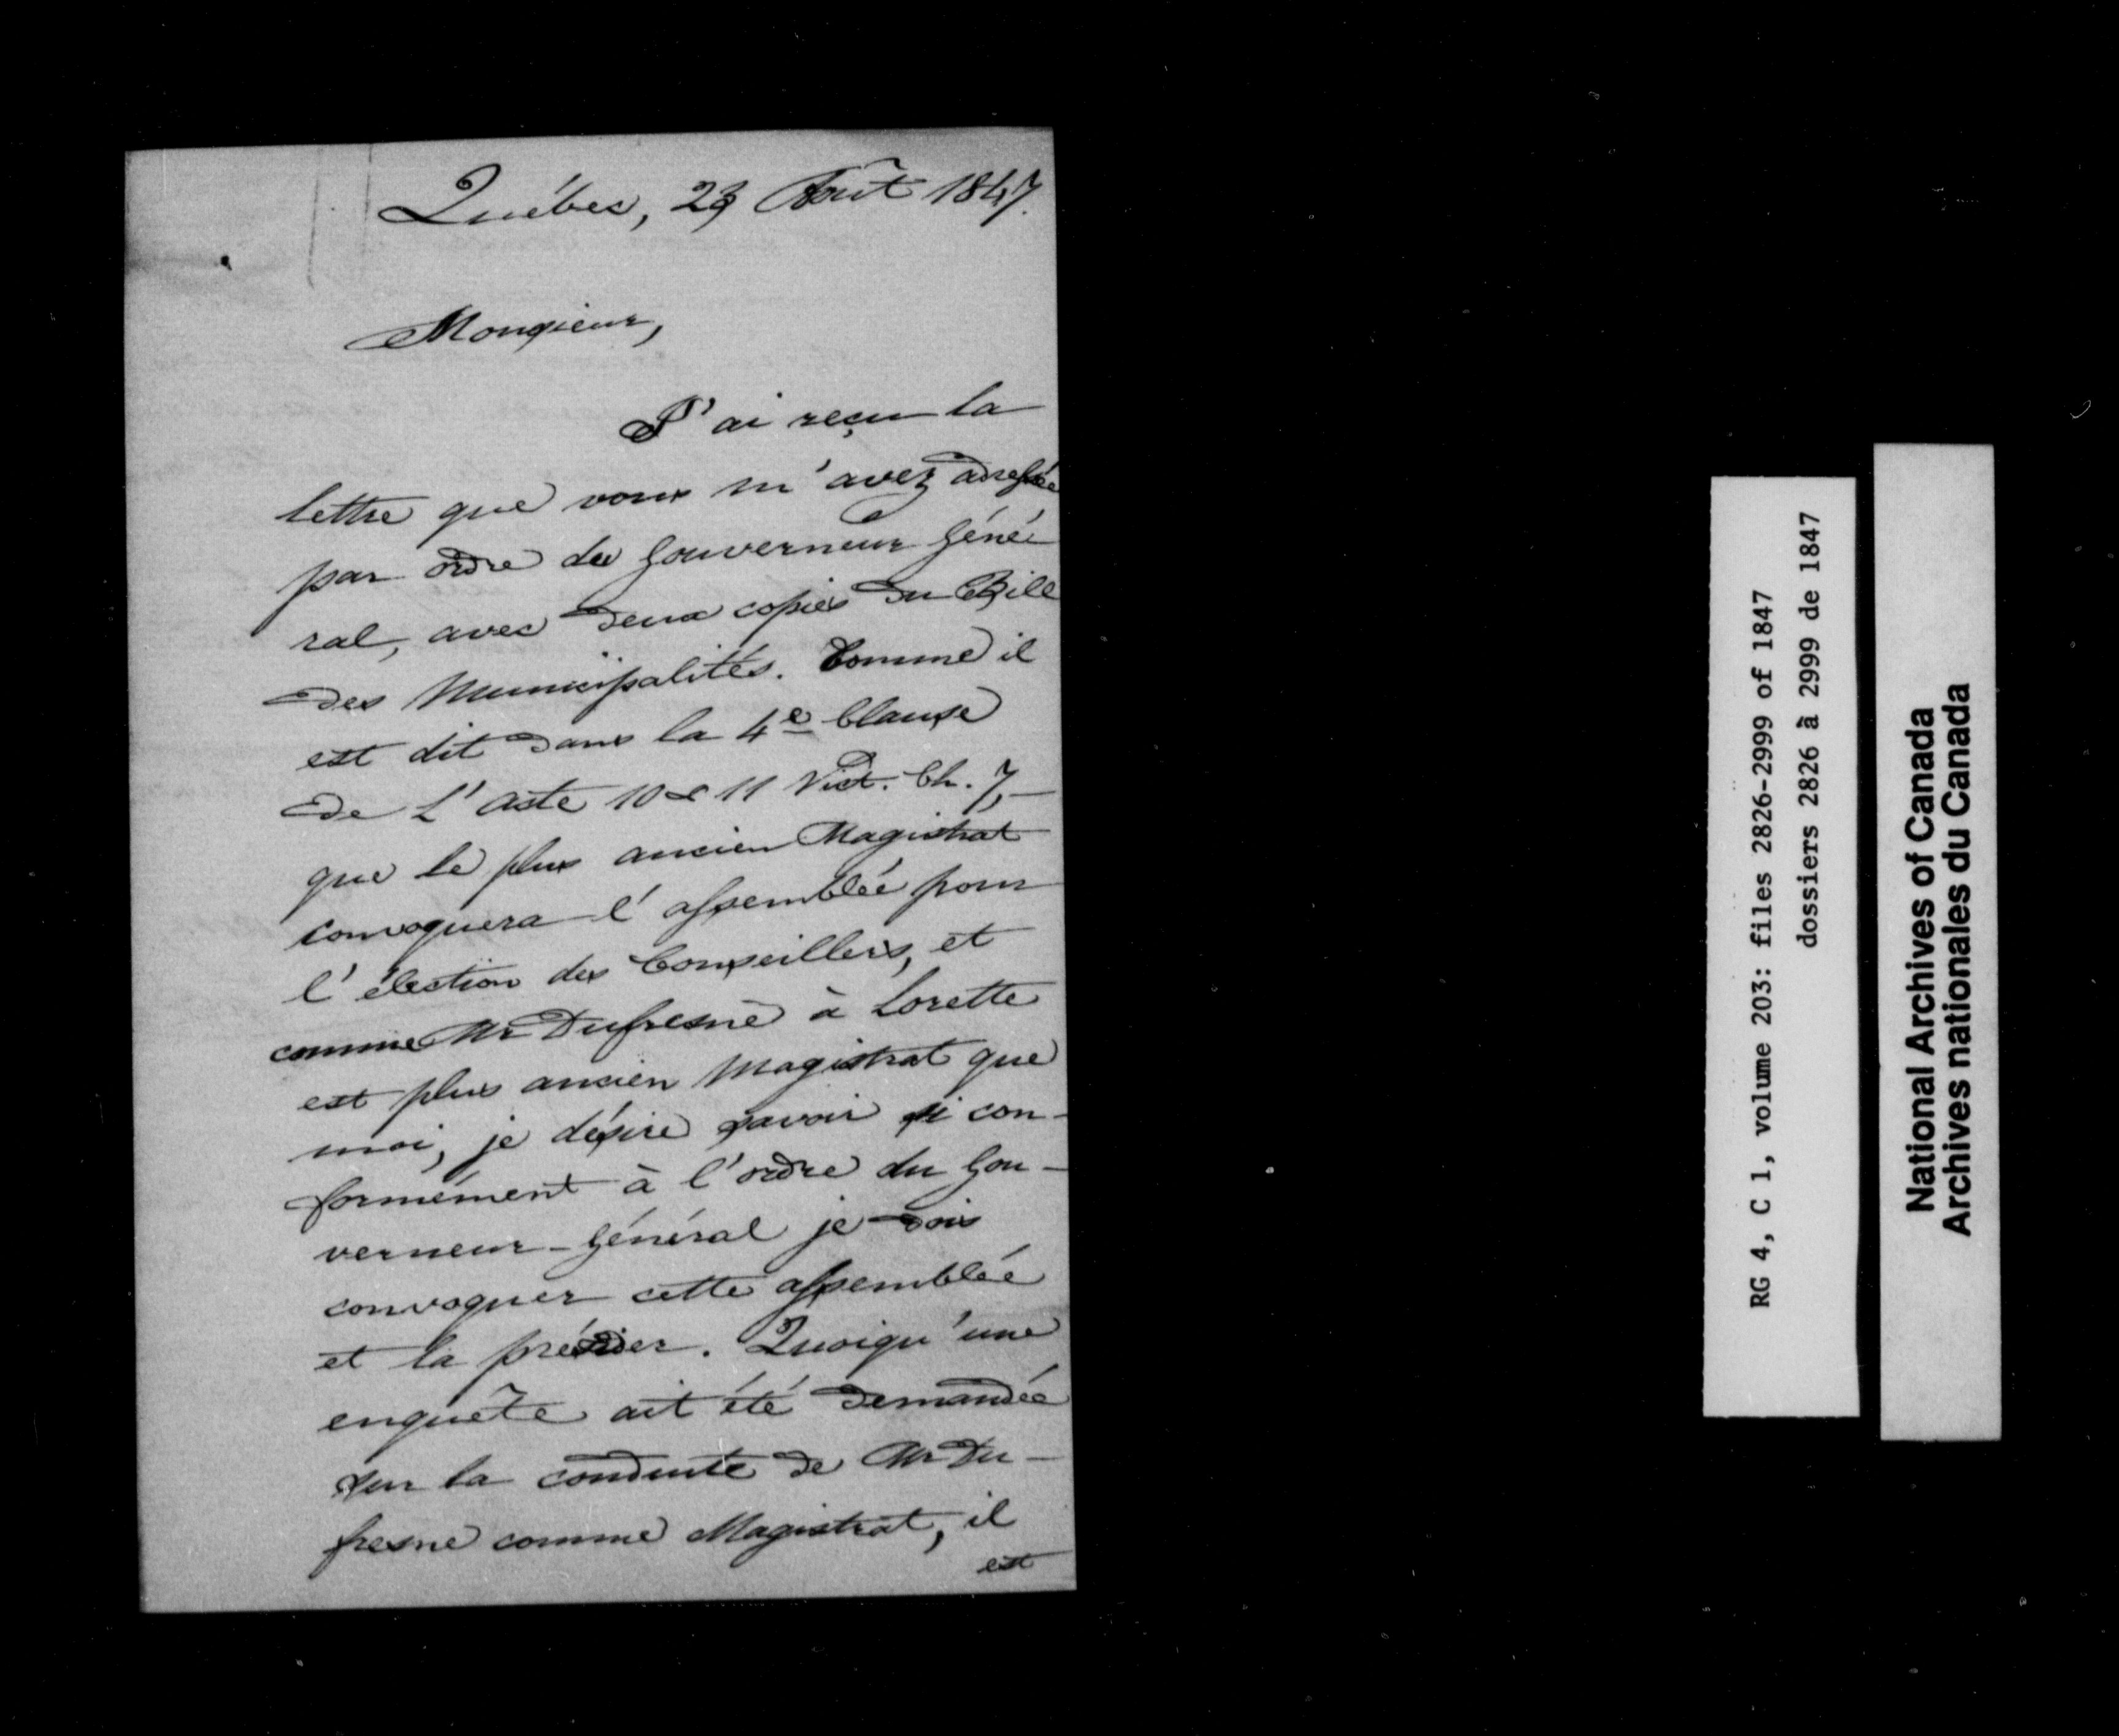 Québec, 23 Août 1847.
Monsieur,
J'ai reçu la
lettre que vous m'avez adressée
par ordre du Gouverneur Géné-
ral, avec deux copies du Bill
des Municipalités. Comme il
est dit dans la 4e Clause
de L'acte 10 & 11 Vict. Ch. 7,
que le plus ancien Magistrat
convoquera l'assemblée pour
l'élection des Conseillers, et
comme Mr Dufresne à Lorette
est plus ancien Magistrat que
moi, je désire savoir si con-
formément à l'ordre du Gou-
verneur-Général je dois
convoquer cette assemblée
et la présider. Quoiqu'une
enquête ait été demandée
sur la conduite de Mr Du-
fresne comme Magistrat, il
est
RG 4, C 1, volume 203: files 2826-2999 of 1847
dossiers 2826 à 2999 de 1847
National Archives of Canada
Archives nationales du Canada